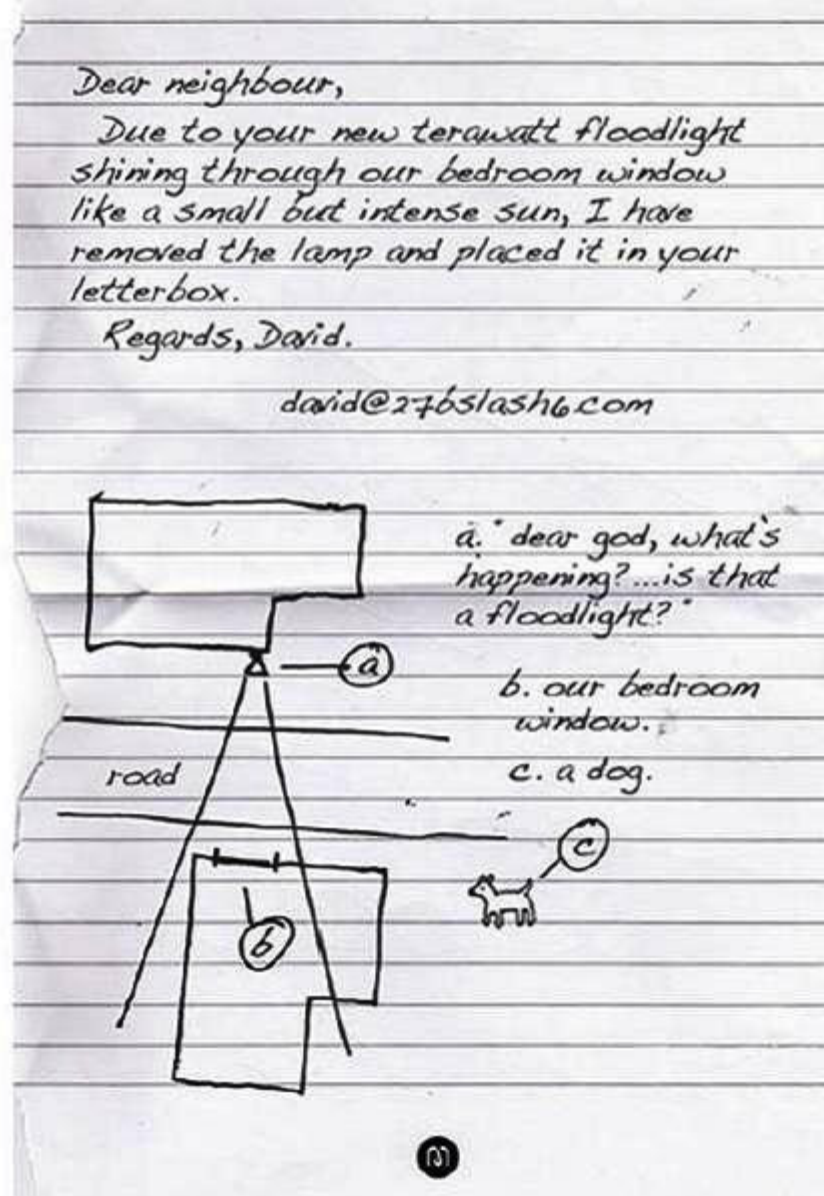 Dear neighbour,
Due to your new terawatt floodlight
shining through our bedroom window
like a small but intense sun, I have
removed the lamp and placed it in your
letterbox.
Regards, David.
david@27bslash6.com
a. "dear god, what's
happening?...is that
a floodlight?"
a
b. our bedroom
window.
road
c. a dog.
c
b